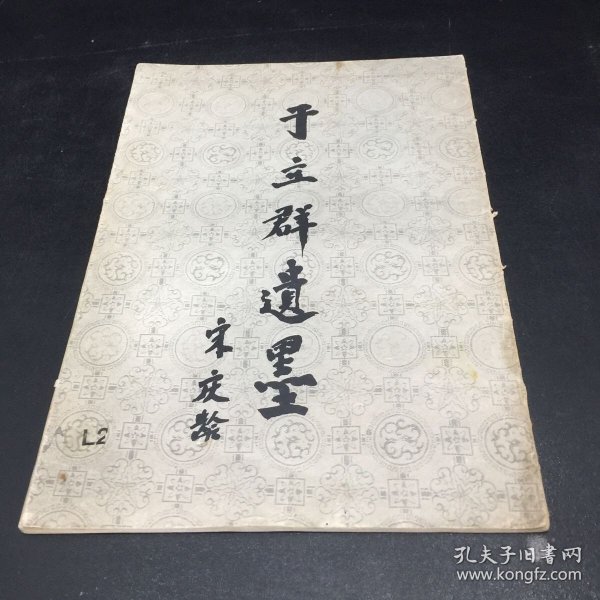 于立群遺墨
宋庆龄
L2
孔夫子旧書网
www.kongfz.com